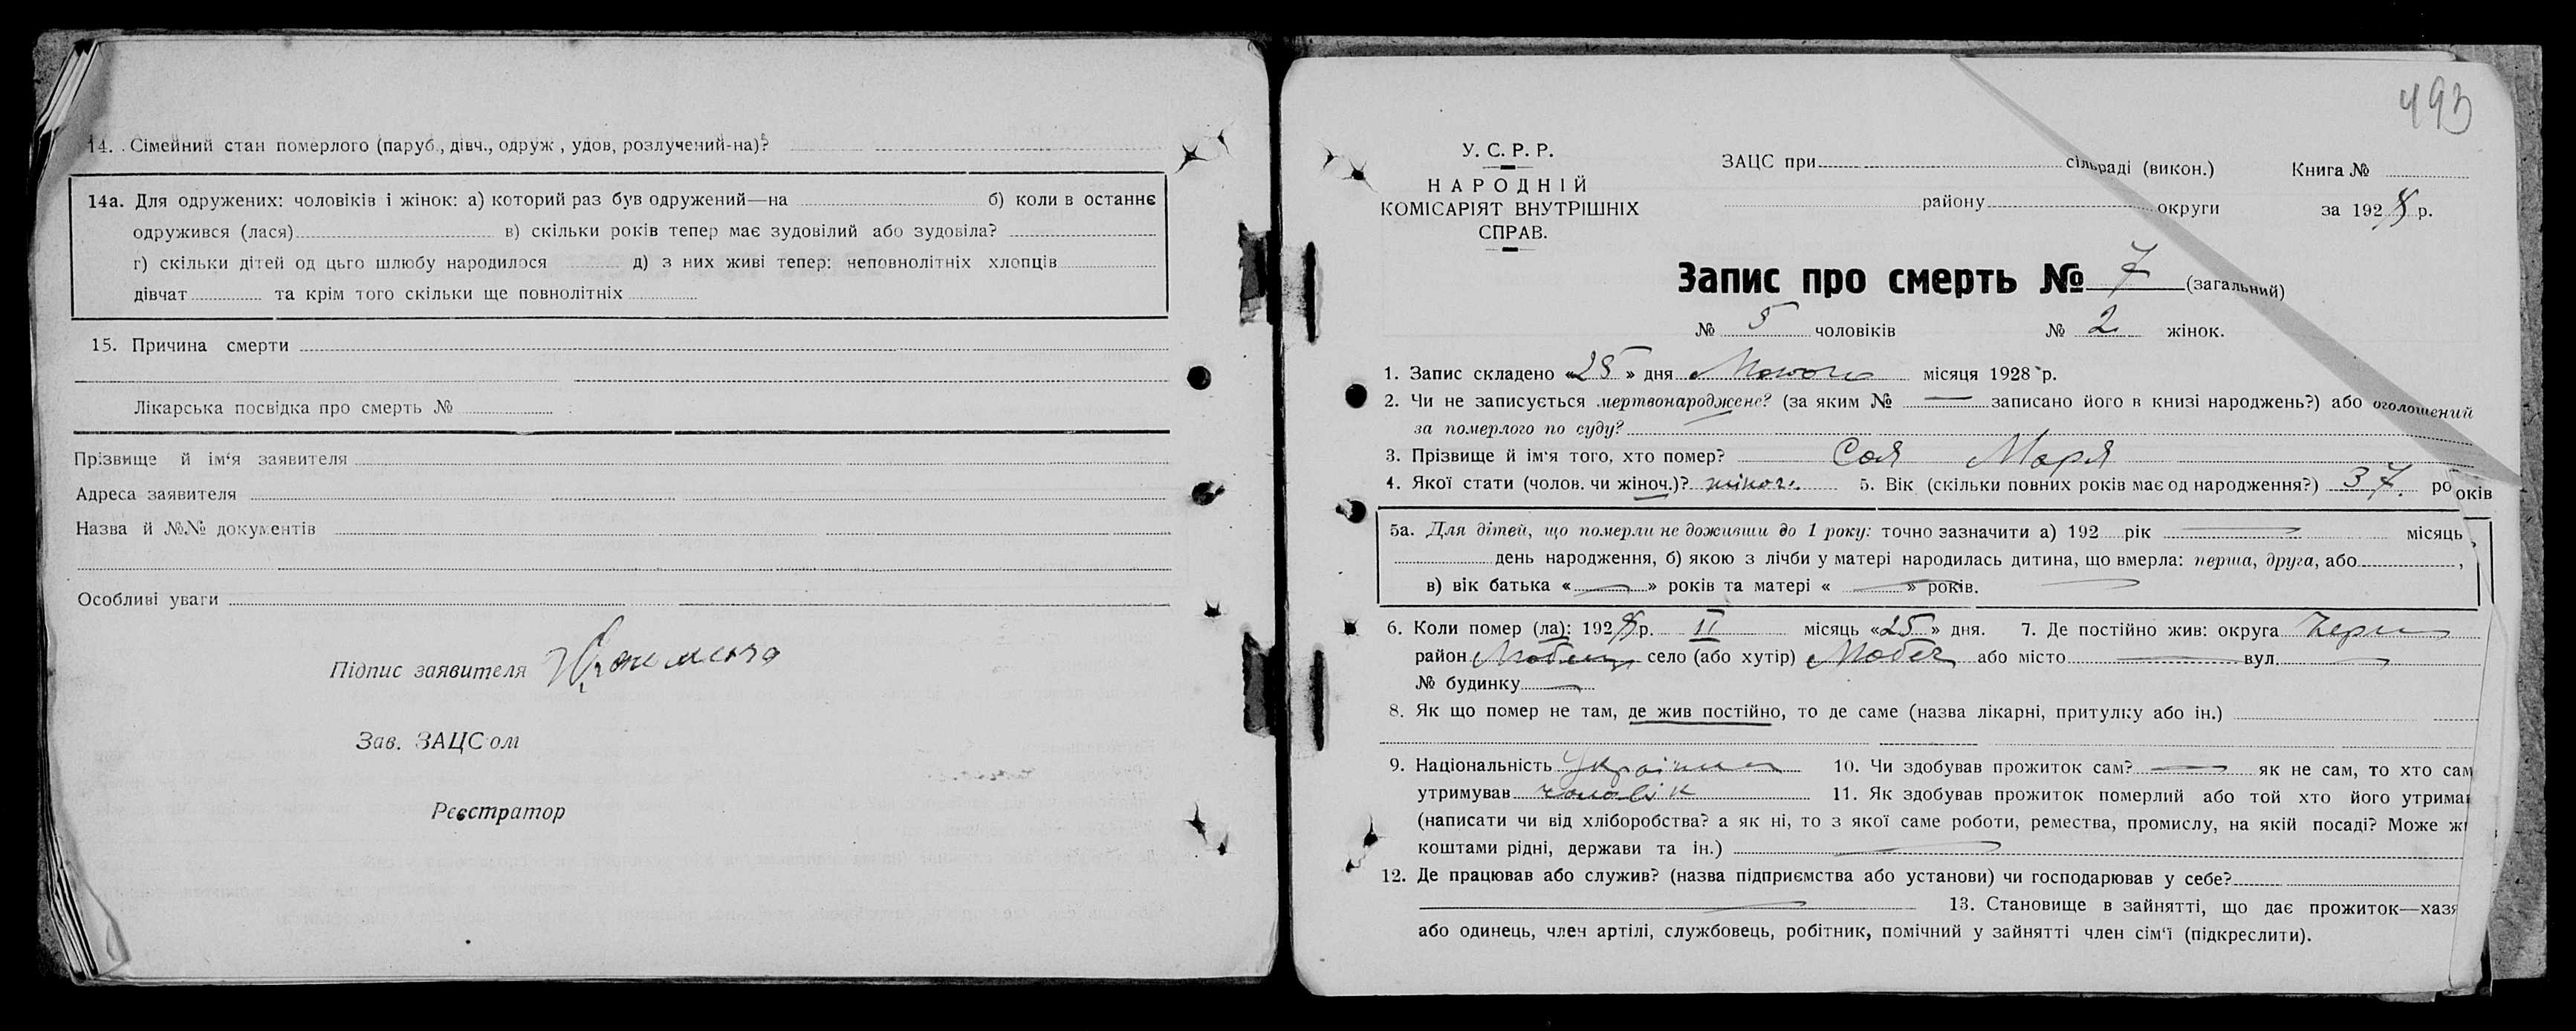 14. Сімейний стан померлого (паруб., дівч., одруж., удов, розлучений-на)?
14а. Для одружених: чоловіків і жінок: а) который раз був одружений—на б) коли в останнє
одружився (лася) в) скільки років тепер має зудовілий або зудовіла?
г) скільки дітей од цього шлюбу народилося д) з них живі тепер: неповнолітніх хлопців
дівчат та крім того скільки ще повнолітніх
15. Причина смерти
Лікарська посвідка про смерть №
Прізвище й ім'я заявителя
Адреса заявителя
Назва й №№ документів
Особливі уваги
Підпис заявителя
Зав. ЗАЦС'ом
Реєстратор
493
У. С. Р. Р.
НАРОДНІЙ
КОМІСАРІЯТ ВНУТРІШНІХ
СПРАВ.
ЗАЦС при сільраді (викон.) Книга №
району округи за 1928 р.
Запис про смерть № 7 (загальний)
№ 5 чоловіків № 2 жінок.
1. Запис складено «25» дня місяця 1928 р.
2. Чи не записується мертвонароджене? (за яким № — записано його в книзі народжень?) або оголошений
за померлого по суду?
3. Прізвище й ім'я того, хто помер? Соя Марія
4. Якої стати (чолов. чи жіноч.)? жіноч. 5. Вік (скільки повних років має од народження?) 37. років
5а. Для дітей, що померли не доживши до 1 року: точно зазначити а) 192 рік — місяць,
день народження, б) якою з лічби у матері народилась дитина, що вмерла: перша, друга, або ,
в) вік батька « — » років та матері « — » років. —
6. Коли помер (ла): 1928 р. II місяць «25» дня. 7. Де постійно жив: округа Черн
район село (або хутір) Любеч або місто — вул. —
№ будинку —
8. Як що помер не там, де жив постійно, то де саме (назва лікарні, притулку або ін.)
9. Національність Україн 10. Чи здобував прожиток сам? — як не сам, то хто сам
утримував чоловік 11. Як здобував прожиток померлий або той хто його утримав
(написати чи від хліборобства? а як ні, то з якої саме роботи, ремества, промислу, на якій посаді? Може жи
коштами рідні, держави та ін.) —
12. Де працював або служив? (назва підприємства або установи) чи господарював у себе?
— 13. Становище в зайнятті, що дає прожиток—хазя
або одинець, член артілі, службовець, робітник, помічний у зайнятті член сім'ї (підкреслити).